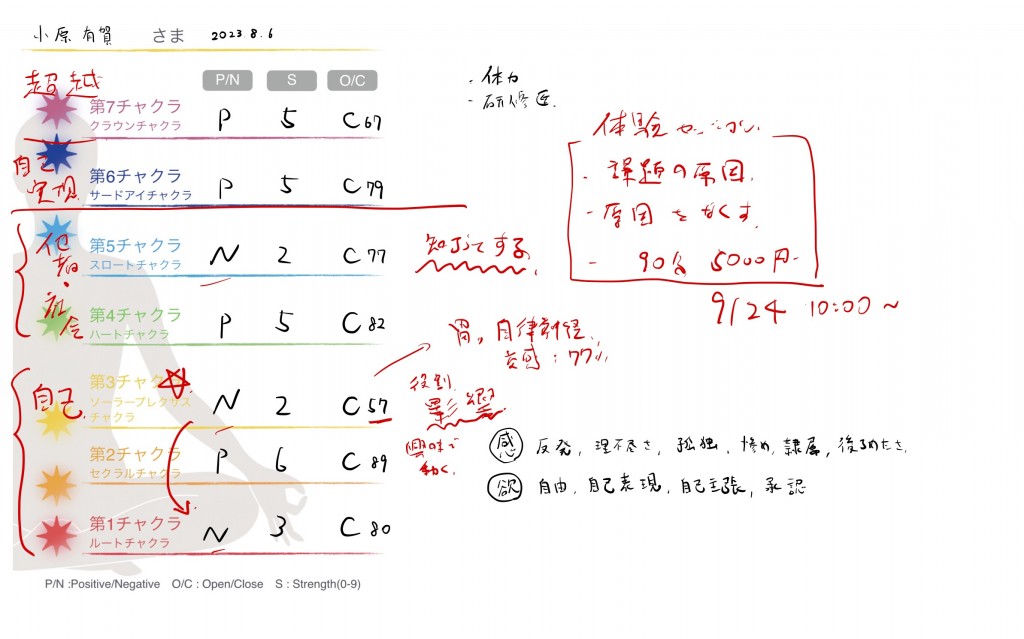 小原 有賀 さま 2023.8.6
P/N S O/C
超越
第7チャクラ
クラウンチャクラ
P 5 C67
自己実現
第6チャクラ
サードアイチャクラ
P 5 C79
他者・社会
第5チャクラ
スロートチャクラ
N 2 C77
第4チャクラ
ハートチャクラ
P 5 C82
自己
第3チャクラ
ソーラープレクサス
チャクラ
N 2 C57
第2チャクラ
セクラルチャクラ
P 6 C89
第1チャクラ
ルートチャクラ
N 3 C80
P/N :Positive/Negative O/C : Open/Close S : Strength(0-9)
・体力
・研修医
体験セッション
・課題の原因
・原因をなくす
・90分 5000円
9/24 10:00~
胃, 自律神経
交感:77%
役割
影響
興味で
動く
感 反発, 理不尽さ, 孤独, 惨め, 隷属, 後ろめたさ
欲 自由, 自己表現, 自己主張, 承認